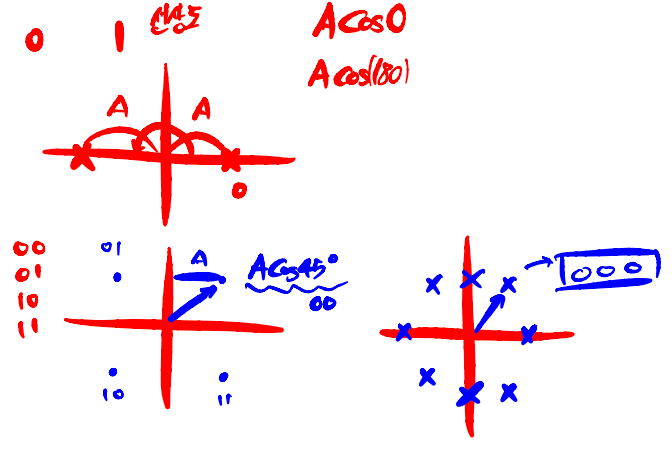 0 1
A cos 0
A cos(180)
A A
0
00
01
10
11
01
A
A cos 45°
00
10
11
000